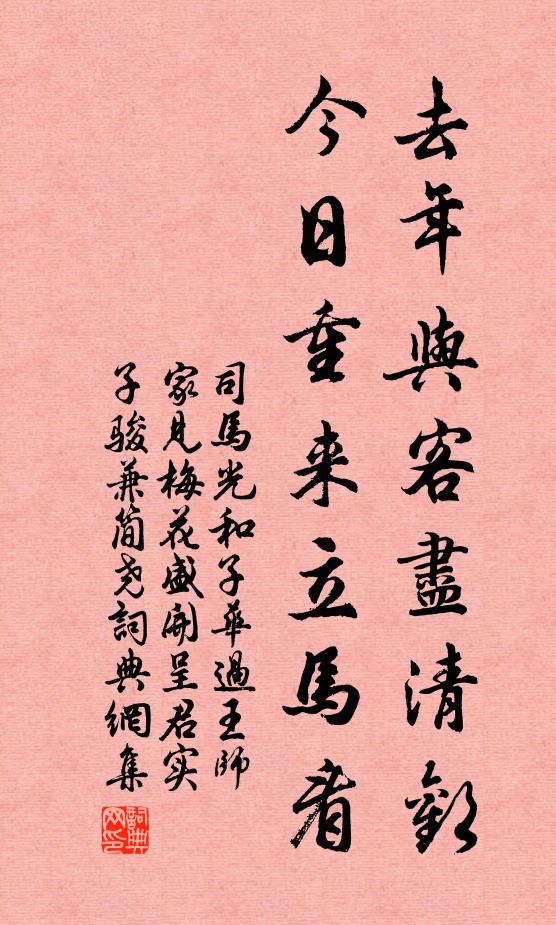 去年與客盡清歡
今日重来立馬看
司馬光和子華過王師
家見梅花盛開呈君实
子駿兼簡堯詞典網集
詞典
网印